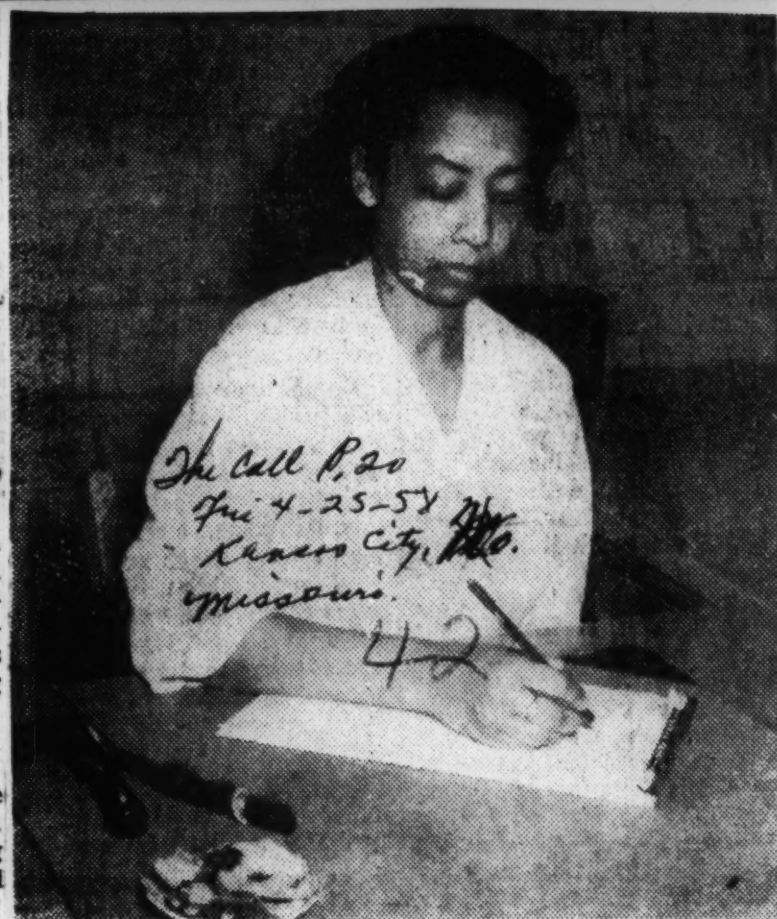 The Call P. 20
Fri 4-25-58
Kansas City, Mo.
Missouri.
42